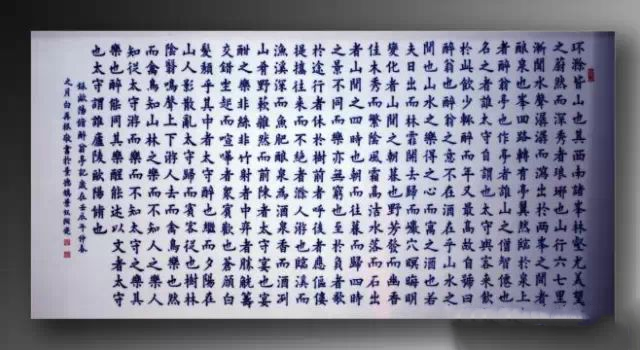 环滁皆山也其西南諸峯林壑尤美望
之蔚然而深秀者琅琊也山行六七里
漸聞水聲潺潺而瀉出於兩峯之間者
釀泉也峯回路轉有亭翼然臨於泉上
者醉翁亭也作亭者誰山之僧智僊也
名之者誰太守自謂也太守與客來飲
於此飲少輒醉而年又最高故自號曰
醉翁也醉翁之意不在酒在乎山水之
間也山水之樂得之心而寓之酒也若
夫日出而林霏開雲歸而巖穴暝晦明
變化者山間之朝暮也野芳發而幽香
佳木秀而繁陰風霜高潔水落而石出
者山間之四時也朝而往暮而歸四時
之景不同而樂亦無窮也至於負者歌
於途行者休於樹前者呼後者應傴僂
提攜往來而不絕者滁人遊也臨溪而
漁溪深而魚肥釀泉為酒泉香而酒洌
山肴野蔌雜然而前陳者太守宴也宴
酣之樂非絲非竹射者中弈者勝觥籌
交錯坐起而喧嘩者衆賓歡也蒼顏白
髮頹乎其中者太守醉也繼而夕陽在
山人影散亂太守歸而賓客從也樹林
陰翳鳴聲上下遊人去而禽鳥樂也然
而禽鳥知山林之樂而不知人之樂人
知從太守遊而樂而不知太守之樂其
樂也醉能同其樂醒能述以文者太守
也太守謂誰廬陵歐陽脩也
錄歐陽脩醉翁亭記歲在壬辰年仲春
之月白再根敬書於景德鎮